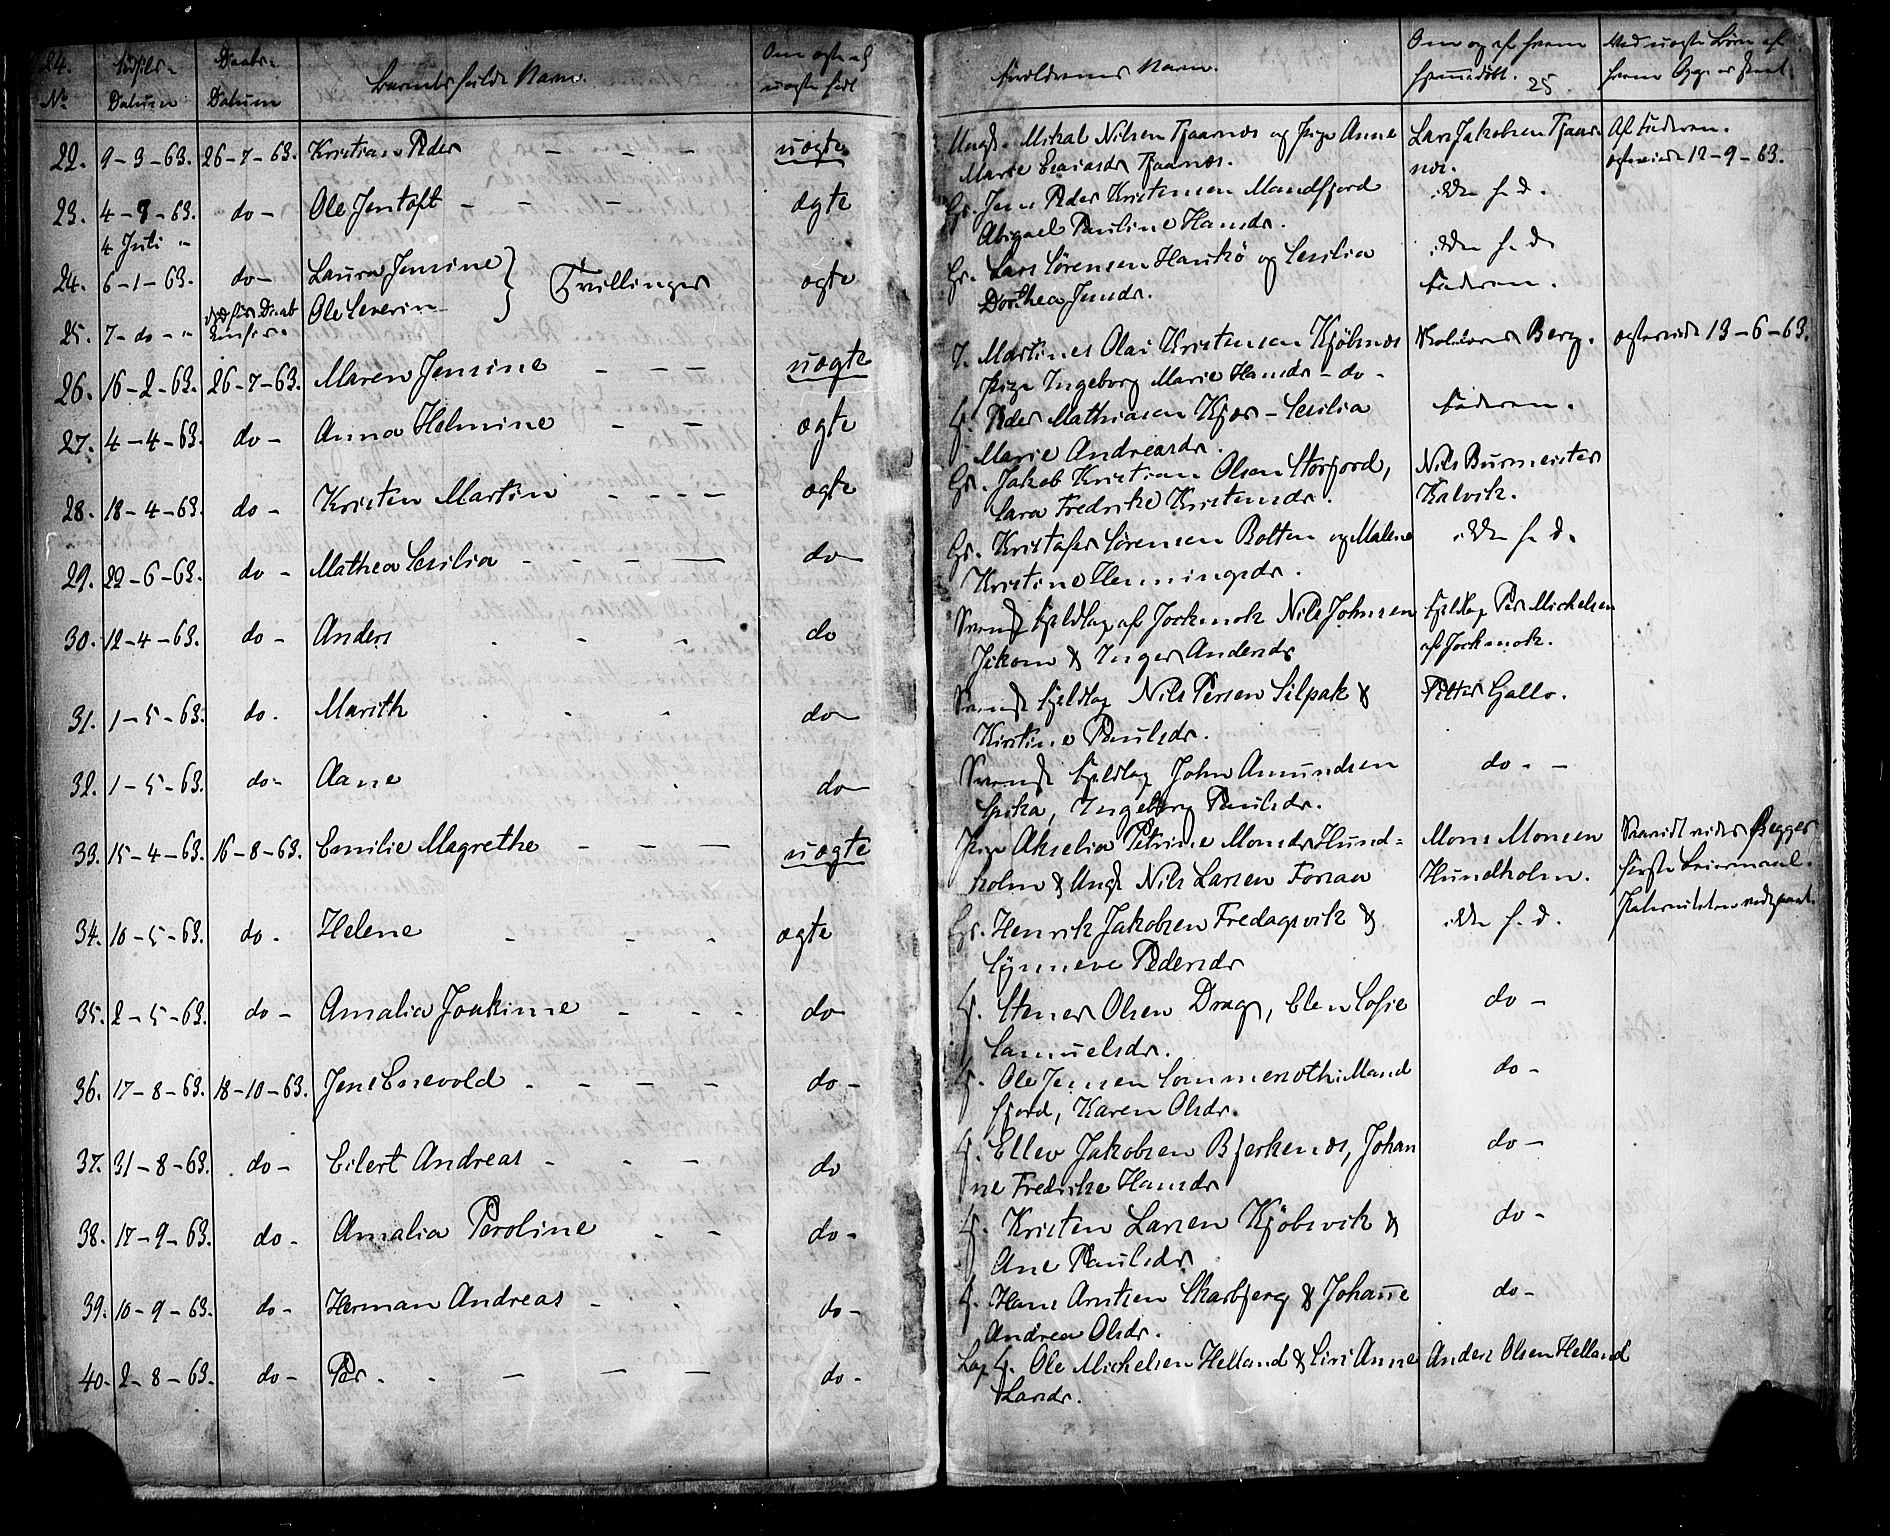 24.
No
Fødsels-
Datum
Daabs-
Datum
Barnets fulde Navn.
Om ægte el
uægte født
Forældrenes Navn.
Om og af hvem
hjemmedøbt.
25
Ved uægte Børn af
hvem Opg. er skeet.
22. 9-3-63. 26-7-63. Kristian Peder - - - uægte.
Ungk. Mikal Nilsen Tjaarnæs og Pige Anne
Marie Esaiasdr Tjaarnæs.
Lars Jakobsen Tjaar-
næs.
Af Faderen.
12-9-63.
23. 4-8-63. do - Ole Jentoft - - - ægte
4 Juli "
Gr. Jens Peder Kristensen Mandfjord
Abigael Pauline Hansdr.
ikke h. d.
24. 6-1-63. do - Laura Jensine } Tvillinger ægte
Gr. Lars Sørensen Haukø og Cesilia
Dorthea Jensdr.
ikke h. d.
Faderen.
død før Daab
25. 7 - do - " Ole Severin
26. 16-2-63. 26-7-63. Maren Jensine - - - uægte
J. Martines Olai Kristensen Kjöbnæs
Pige Ingeborg Marie Hansdr - do -
Skolelærer Berg.
13-6-63.
27. 4-4-63. do - Anna Helmine - - ægte
G. Peder Mathiasen Kjær - Cesilia
Marie Andreasdr.
Faderen.
28. 18-4-63. do - Kristen Martin - - - - ægte
Gr. Jakob Kristian Olsen Storfjord,
Sara Fredrike Kristensdr.
Nils Burmeister
Kalvik.
29. 22-6-63. do - Mathea Cesilia - - - - do
Gr. Kristofer Sørensen Bolten og Malene
Kristine Henningsdr.
ikke h. d.
30. 12-4-63. do - Anders - - - do
Svensk Fjeldlap af Jockmok Nils Johnsen
& Inger Andersdr
Fjeldlap Per Michelsen
af Jockmok.
31. 1-5-63. do. Marith - - - do
Svensk Fjeldlap Nils Persen Silpak &
Kirstine Paulsdr.
Petter Gallo.
32. 1-5-63. do - Aane do
Svensk Fjeldlap John Amundsen
Spika, Ingeborg Paulsdr.
do - -
33. 15-4-63. 16-8-63. Emilie Magrethe - - - uægte
Pige Akselia Petrine Monsdr Hund=
holm & Ungk Nils Larsen Forsaa
Mons Monsen
Hundholm.
Begges
første Leiermaal.
34. 10-5-63. do. Helene - - - ægte
Gr. Henrik Jakobsen Fredagsvik &
Synneve Pedersdr
ikke h. d.
35. 2-5-63. do - Amalia Joakime - - - do
G. Stener Olsen Drag, Elen Sofie
Samuelsdr.
do -
36. 17-8-63. 18-10-63. Jens Enevold - - - - do -
G. Ole Jensen Sommerseth i Mand
fjord, Karen Olsdr.
do -
37. 31-8-63. do - Eilert Andreas - - - do
G. Ellev Jakobsen Bjerkenæs, Johan
ne Fredrike Hansdr
do -
38. 17-9-63. do - Amalia Peroline - - do -
G. Kristen Larsen Kjöbsvik &
Ane Paulsdr.
do -
39. 10-9-63. do - Herman Andreas - - do -
G. Hans Arntsen Skarbjerg & Johanne
Andrea Olsdr.
do -
40. 2-8-63. do - Per. - - - - do -
Lap G. Ole Michelsen Helland & Siri Anne
Larsdr.
Anders Olsen Helland